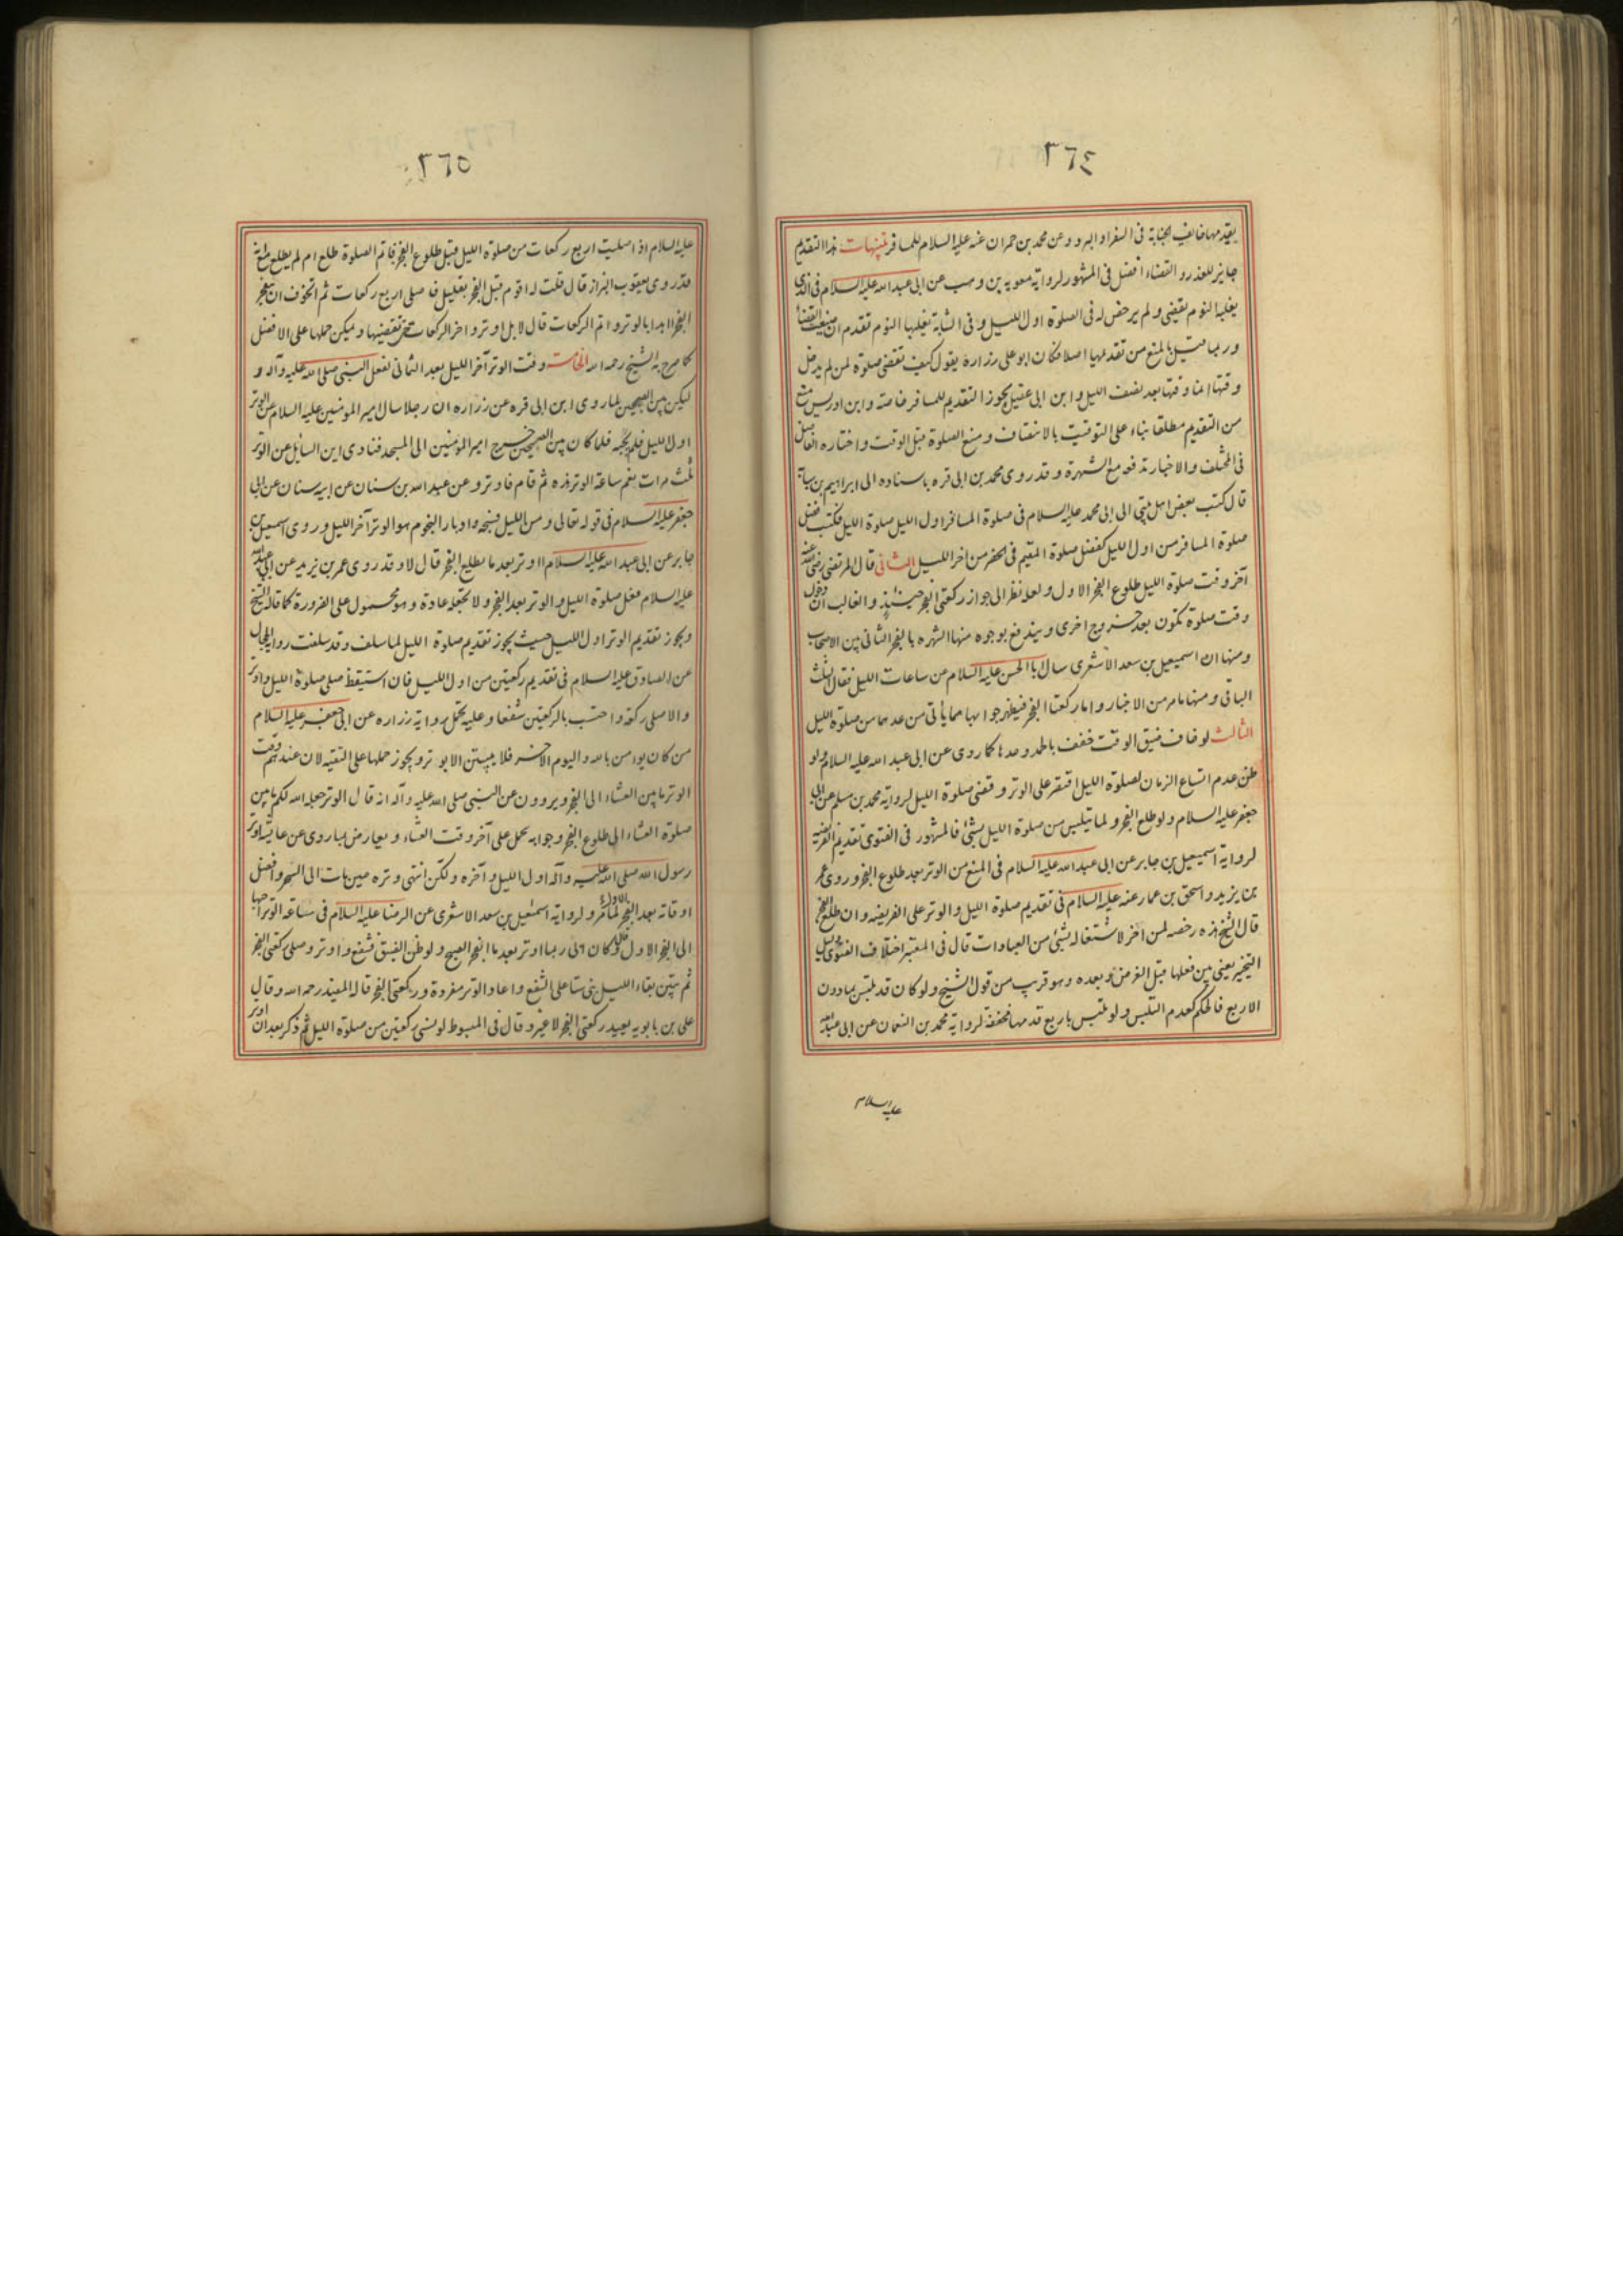 ٣٦٤
يقدمها خائف الجنابة فى السفر او البرد وعن محمد بن حمران عنه عليه السلام للمسافر تنبيهات هذا التقديم
جايز للعذر والقضاء افضل فى المشهور لرواية معوية بن وهب عن ابى عبد الله عليه السلام فى الذى
يغلبه النوم يقضى ولم يرخص له فى الصلوة اول الليل وفى الشابة يغلبها النوم تقدم ان ضيعت القضا
وربما قيل بالمنع من تقديمها اصلا فكان ابو على زرارة يقول كيف تقضى صلوة لمن لم يدخل
وقتها انما وقتها بعد نصف الليل وابن ابى عقيل يجوز التقديم للمسافر خاصة وابن ادريس منع
من التقديم مطلقا بناء على التوقيت بالانتصاف ومنع الصلوة قبل الوقت واختاره الفاضل
فى المختلف والاخبار تدفعه مع الشهرة وقد روى محمد بن ابى قره باسناده الى ابراهيم بن سيابة
قال كتب بعض اهل بيتى الى ابى محمد عليه السلام فى صلوة المسافر اول الليل صلوة الليل فكتب فضل
صلوة المسافر من اول الليل كفضل صلوة المقيم فى الحضر من اخر الليل الثانى قال المرتضى رضى الله عنه
آخر وقت صلوة الليل طلوع الفجر الاول ولعله نظر الى جواز ركعتى الفجر حينئذ والغالب ان دخول
وقت صلوة تكون بعد خروج اخرى ويندفع بوجوه منها الشهره بالفجر الثانى بين الاصحاب
ومنها ان اسمعيل بن سعد الاشعرى سال ابا الحسن عليه السلام عن ساعات الليل فقال الثلث
الباقى ومنها ما مر من الاخبار واما ركعتا الفجر فيظهر جوابها مما يأتى من عدهما من صلوة الليل
الثالث لو خاف ضيق الوقت خفف بالحمد وحدها كما روى عن ابى عبد الله عليه السلام ولو
ظن عدم اتساع الزمان لصلوة الليل اقتصر على الوتر وقضى صلوة الليل لرواية محمد بن مسلم عن ابى
جعفر عليه السلام ولو طلع الفجر ولما يتلبس من صلوة الليل بشئ فالمشهور فى الفتوى تقديم الفريضه
لرواية اسمعيل بن جابر عن ابى عبد الله عليه السلام فى المنع من الوتر بعد طلوع الفجر وروى عمر
بن يزيد واسحق بن عمار عنه عليه السلام فى تقديم صلوة الليل والوتر على الفريضه وان طلع الفجر
قال الشيخ هذه رخصه لمن اخر لاشتغاله بشئ من العبادات قال فى المعتبر اختلاف الفتوى دليل
التخيير يعنى بين فعلها قبل الفرض وبعده وهو قريب من قول الشيخ ولو كان قد تلبس بما دون
الاربع فالحكم كعدم التلبس ولو تلبس باربع قدمها مخففة لرواية محمد بن النعمان عن ابى عبد الله
عليه السلام
٣٦٥
عليه السلام اذا صليت اربع ركعات من صلوة الليل قبل طلوع الفجر فاتم الصلوة طلع ام لم يطلع
قد روى يعقوب البزاز قال قلت له اقوم قبل الفجر بقليل فاصلى اربع ركعات ثم اتخوف ان ينفجر
الفجر ابدا بالوتر واتم الركعات قال لا بل اوتر واخر الركعات حتى تقضيها ويمكن حملها على الافضل
كما صرح به الشيخ رحمه الله الخامسة وقت الوتر آخر الليل بعد الثمانى لفعل النبى صلى الله عليه وآله و
ليكن بين الصبحين لما روى ابن ابى قره عن زراره ان رجلا سال امير المومنين عليه السلام عن الوتر
اول الليل فلم يجبه فلما كان بين الصبحين خرج امير المؤمنين الى المسجد فنادى اين السايل عن الوتر
ثلث مرات نعم ساعة الوتر هذه ثم قام فاوتر وعن عبد الله بن سنان عن ابيه سنان عن ابى
جعفر عليه السلام فى قوله تعالى ومن الليل فسبحه وادبار النجوم هو الوتر آخر الليل وروى اسمعيل بن
جابر عن ابى عبد الله عليه السلام ااوتر بعد ما يطلع الفجر قال لا وقد روى عمر بن يزيد عن ابى عبد الله
عليه السلام فعل صلوة الليل والوتر بعد الفجر ولا تجعله عادة وهو محمول على الضرورة كما قاله الشيخ
ويجوز تقديم الوتر اول الليل حيث يجوز تقديم صلوة الليل لما سلف وقد سلفت رواية الحلبى
عن الصادق عليه السلام فى تقديم ركعتين من اول الليل فان استيقظ صلى صلوة الليل واوتر
والا صلى ركعة واحتسب بالركعتين شفعا وعليه تحمل رواية زراره عن ابى جعفر عليه السلام
من كان يومن بالله واليوم الاخر فلا يبيتن الا بوتر ويجوز حملها على التقيه لان عندهم وقت
الوتر ما بين العشاء الى الفجر ويروون عن النبى صلى الله عليه وآله انه قال الوتر جعله الله لكم ما بين
صلوة العشاء الى طلوع الفجر وجوابه يحمل على آخر وقت العشاء ويعارض بما روى عن عايشة اوتر
رسول الله صلى الله عليه وآله اول الليل وآخره ولكن انتهى وتره حين مات الى السحر وافضل
اوقاته بعد الفجر الاول لما مر ولرواية اسمعيل بن سعد الاشعرى عن الرضا عليه السلام فى ساعة الوتر احبها
الى الفجر الاول وكان ابى ربما اوتر بعد ما انفجر الصبح ولو ظن الضيق فشفع واوتر وصلى ركعتى الفجر
ثم تبين بقاء الليل بنى ستا على الشفع واعاد الوتر مفردة وركعتى الفجر قاله المفيد رحمه الله وقال
على بن بابويه يعيد ركعتى الفجر لا غير وقال فى المبسوط لو نسى ركعتين من صلوة الليل ثم ذكر بعد ان اوتر